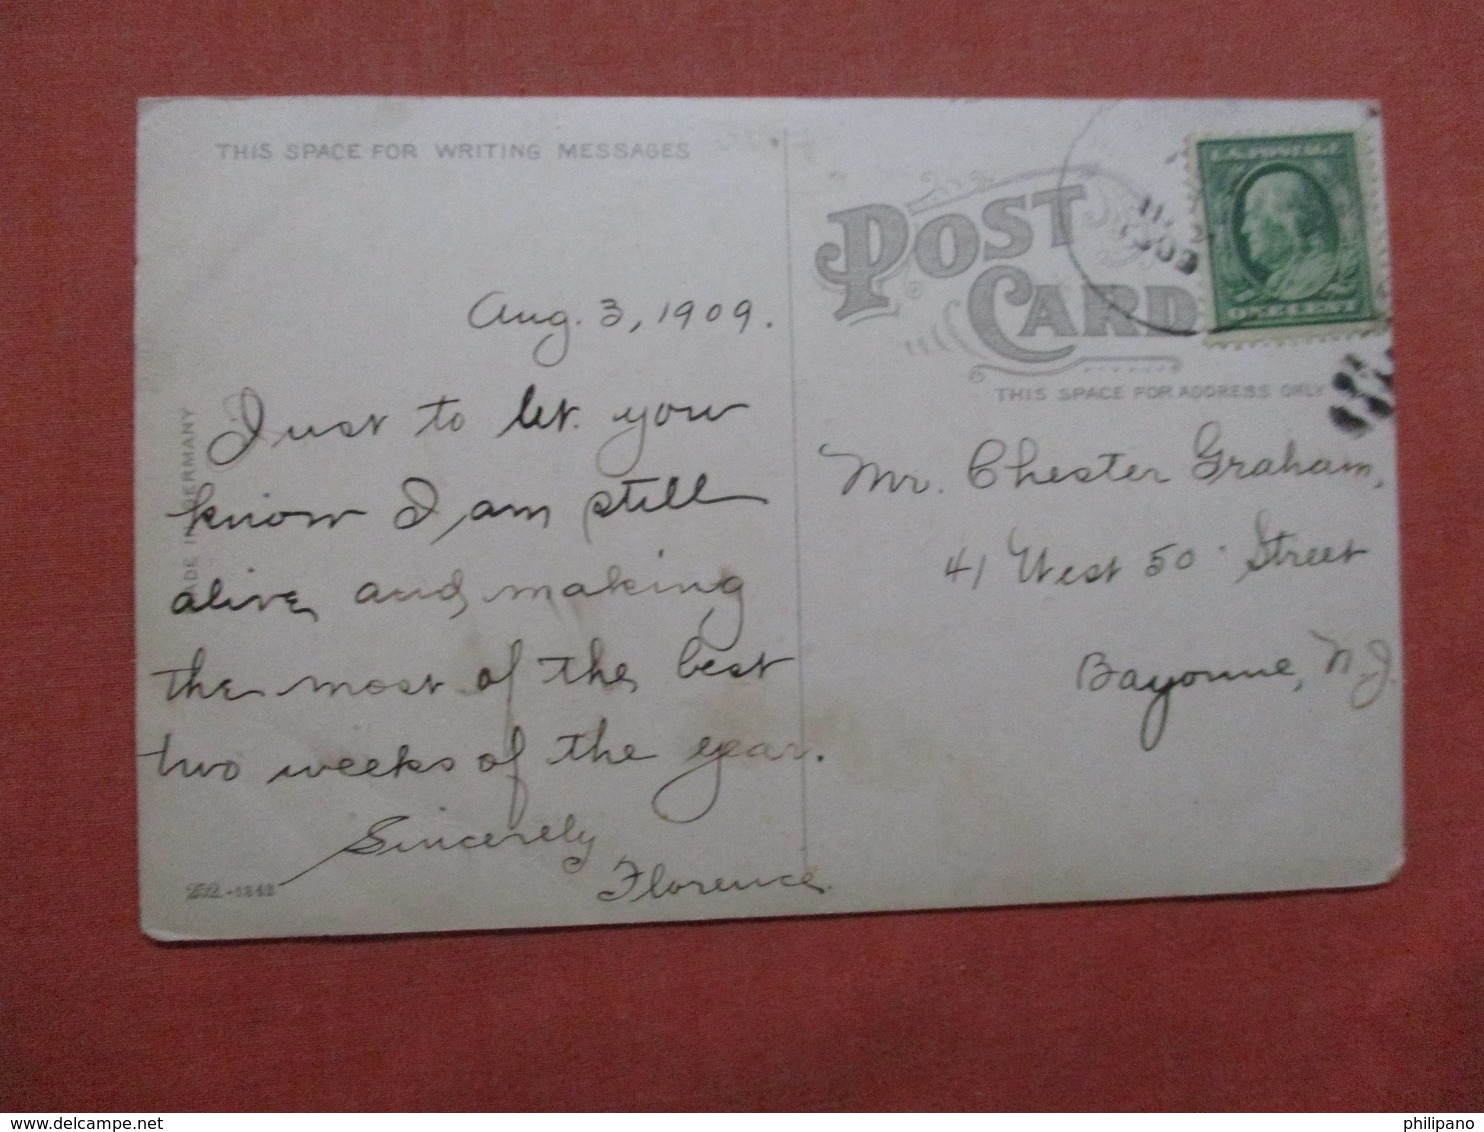 THIS SPACE FOR WRITING MESSAGES
Aug. 3, 1909.
Just to let you
know I am still
alive and making
the most of the best
two weeks of the year.
Sincerely
Florence.
MADE IN GERMANY
POST
CARD
THIS SPACE FOR ADDRESS ONLY
U.S. POSTAGE
ONE CENT
Mr. Chester Graham,
41 West 50 Street
Bayonne, N.J.
delcampe.net
philipano